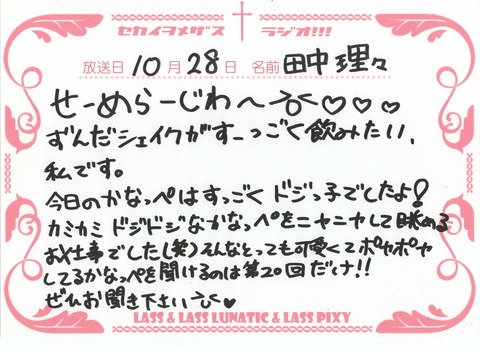 セカイヲメザス ラジオ!!!
放送日 10月28日 名前 田中理々
せーめらーじわ〜♡♡♡
ずんだシェイクがすーっごく飲みたい、
私です。
今日のかなっぺはすっごくドジっ子でしたよ!
カミカミドジドジなかなっぺをニヤニヤして眺める
お仕事でした(笑)そんなとっても可愛くてポヤポヤ
してるかなっぺを聞けるのは第20回だけ!!
ぜひお聞き下さい♥
LASS & LASS LUNATIC & LASS PIXY